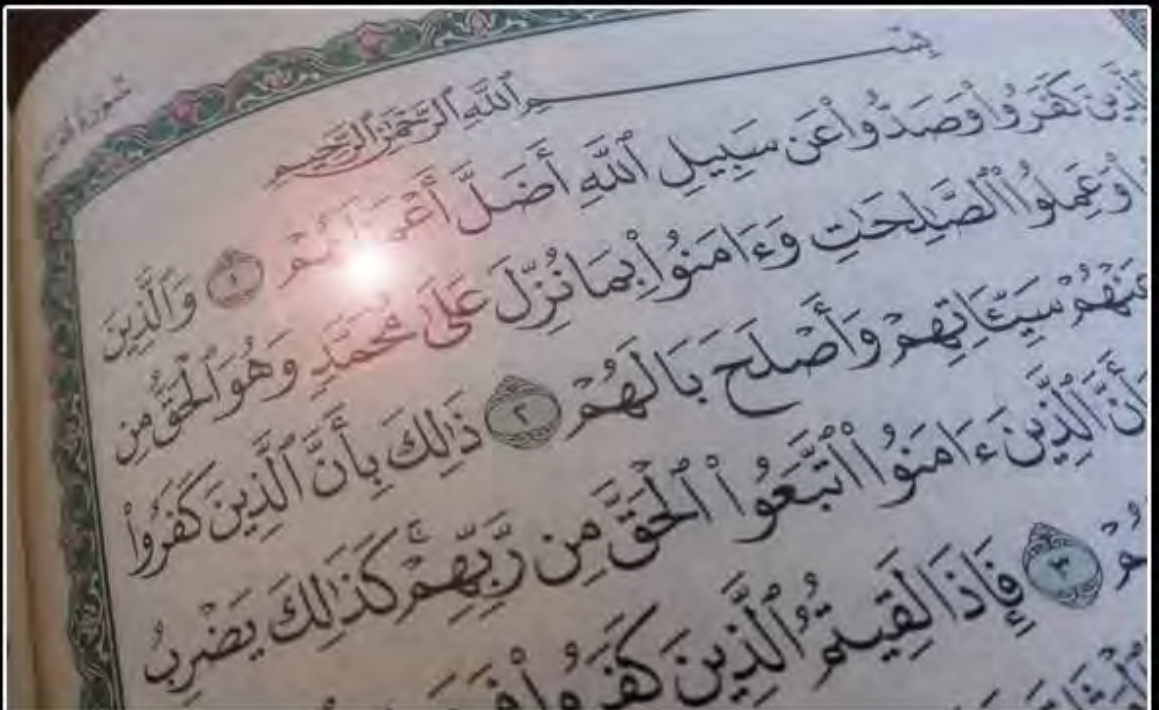 بِسْمِ ٱللَّهِ ٱلرَّحْمَٰنِ ٱلرَّحِيمِ
ٱلَّذِينَ كَفَرُوا۟ وَصَدُّوا۟ عَن سَبِيلِ ٱللَّهِ أَضَلَّ أَعْمَٰلَهُمْ ١ وَٱلَّذِينَ
وَعَمِلُوا۟ ٱلصَّٰلِحَٰتِ وَءَامَنُوا۟ بِمَا نُزِّلَ عَلَىٰ مُحَمَّدٍ وَهُوَ ٱلْحَقُّ مِن
عَنْهُمْ سَيِّـَٔاتِهِمْ وَأَصْلَحَ بَالَهُمْ ٢ ذَٰلِكَ بِأَنَّ ٱلَّذِينَ كَفَرُوا۟
وَأَنَّ ٱلَّذِينَ ءَامَنُوا۟ ٱتَّبَعُوا۟ ٱلْحَقَّ مِن رَّبِّهِمْ كَذَٰلِكَ يَضْرِبُ
٣ فَإِذَا لَقِيتُمُ ٱلَّذِينَ كَفَرُوا۟